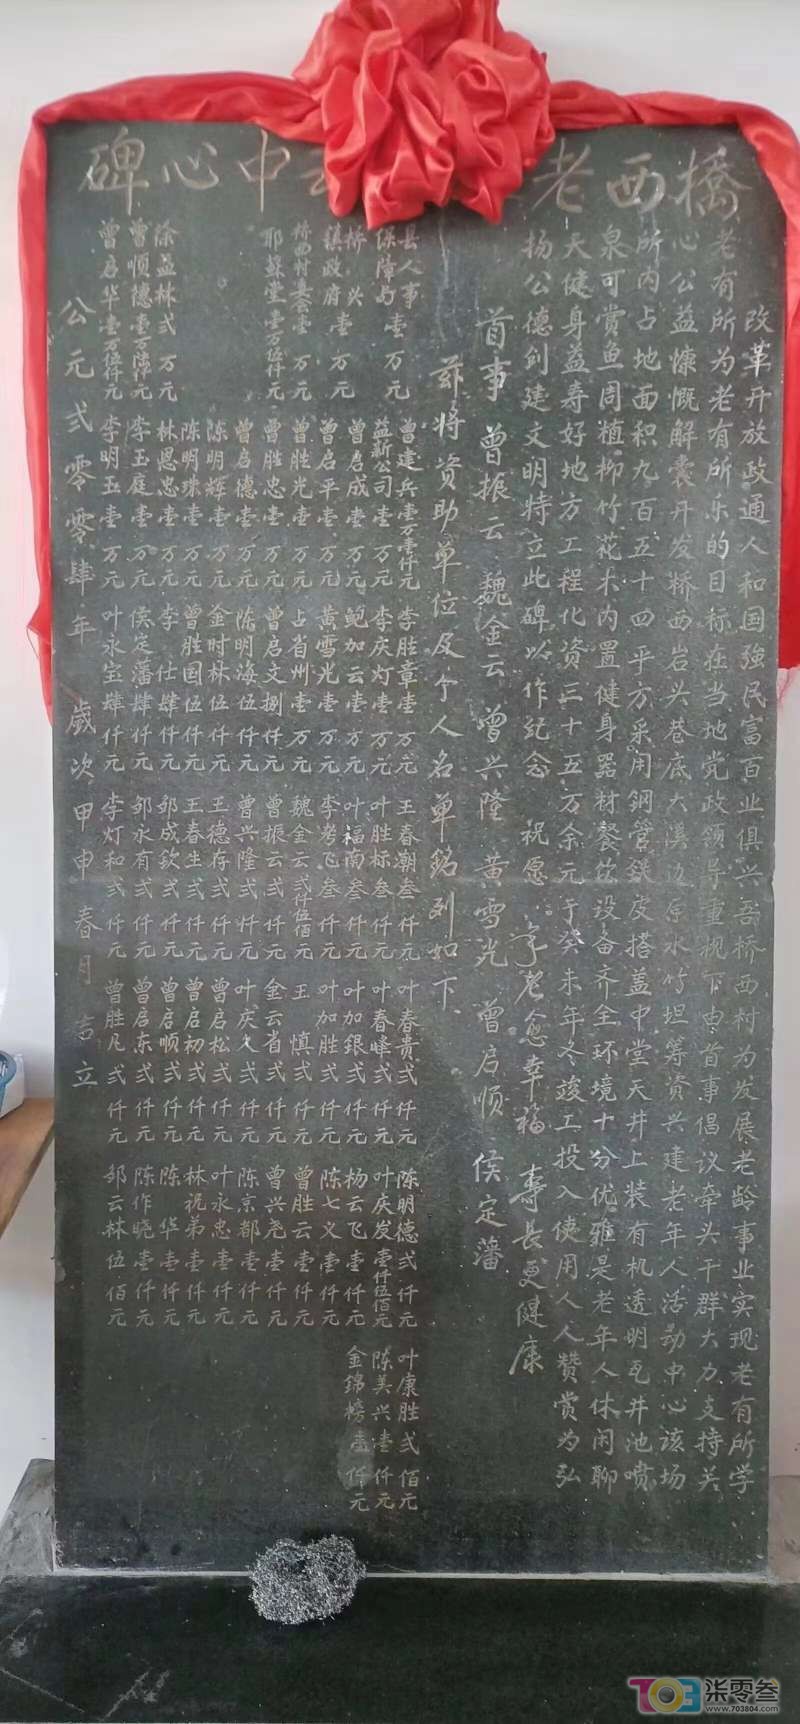 橋西老中心碑
改革开放政通人和国強民富百业俱兴吾桥西村为发展老龄事业实现老有所学
老有所为老有所乐的目标在当地党政领导重视下由首事倡议牵头干群大力支持关
心公益慷慨解囊开发桥西岩头巷底大溪边原水竹坦筹资兴建老年人活动中心该场
所内占地面积九百五十四平方采用钢管鉄皮搭盖中堂天井上装有机透明瓦井池喷
泉可赏鱼周植柳竹花木内置健身器材餐饮设备齐全环境十分优雅是老年人休闲聊
天健身益寿好地方工程化资三十五万余元于癸未年冬竣工投入使用人人赞赏为弘
扬公德创建文明特立此碑以作纪念 祝愿 享老愈幸福 寿长更健康
首事 曾振云 魏金云 曾兴隆 黄雪光 曾启顺 侯定藩
兹将资助单位及个人名单銘列如下
县人事 曾建兵壹万壹仟元 李胜章壹万元 王春潮叁仟元 叶春贵弍仟元 陈明德弍仟元 叶康胜弍佰元
保障局壹万元 益新公司壹万元 李庆灯壹万元 叶胜标叁仟元 叶春峰弍仟元 叶庆发壹仟伍佰元 陈美兴壹仟元
桥兴 曾启成壹万元 鲍加云壹万元 叶福南叁仟元 叶加银弍仟元 杨云飞壹仟元 金锦榜壹仟元
镇政府壹万元 曾启平壹万元 黄雪光壹万元 李考飞叁仟元 叶加胜弍仟元 陈七义壹仟元
桥西村基金会壹万元 曾胜光壹万元 占省州壹万元 魏金云弍仟伍佰元 王慎弍仟元 曾胜云壹仟元
耶稣堂壹万伍仟元 曾胜忠壹万元 曾启文捌仟元 曾振云弍仟元 金云省弍仟元 曾兴尧壹仟元
曾启德壹万元 陈明海伍仟元 曾兴隆弍仟元 叶庆久弍仟元 陈京都壹仟元
陈明辉壹万元 金时林伍仟元 王德存弍仟元 曾启松弍仟元 叶永忠壹仟元
陈明珠壹万元 曾胜国伍仟元 王春生弍仟元 曾启初弍仟元 林祝弟壹仟元
徐益林弍万元 林恩忠壹万元 李仕肆仟元 邹成钦弍仟元 曾启顺弍仟元 陈华壹仟元
曾顺德壹万陆仟元 李玉庭壹万元 侯定藩肆仟元 邹永有弍仟元 曾启东弍仟元 陈作晓壹仟元
曾启华壹万伍仟元 李明玉壹万元 叶永宝肆仟元 李灯和弍仟元 曾胜凡弍仟元 邹云林伍佰元
公元弍零零肆年 歲次甲申春月吉立
703 柒零叁
www.703804.com